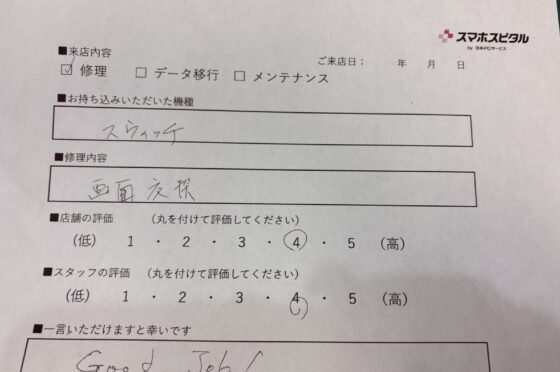 スマホスピタル
by 日本PCサービス
■来店内容
ご来店日： 年 月 日
☑ 修理 □ データ移行 □ メンテナンス
■お持ち込みいただいた機種
スウィッチ
■修理内容
画面交換
■店舗の評価 （丸を付けて評価してください）
（低） 1 ・ 2 ・ 3 ・ 4 ・ 5 （高）
■スタッフの評価 （丸を付けて評価してください）
（低） 1 ・ 2 ・ 3 ・ 4 ・ 5 （高）
■一言いただけますと幸いです
Good Job!